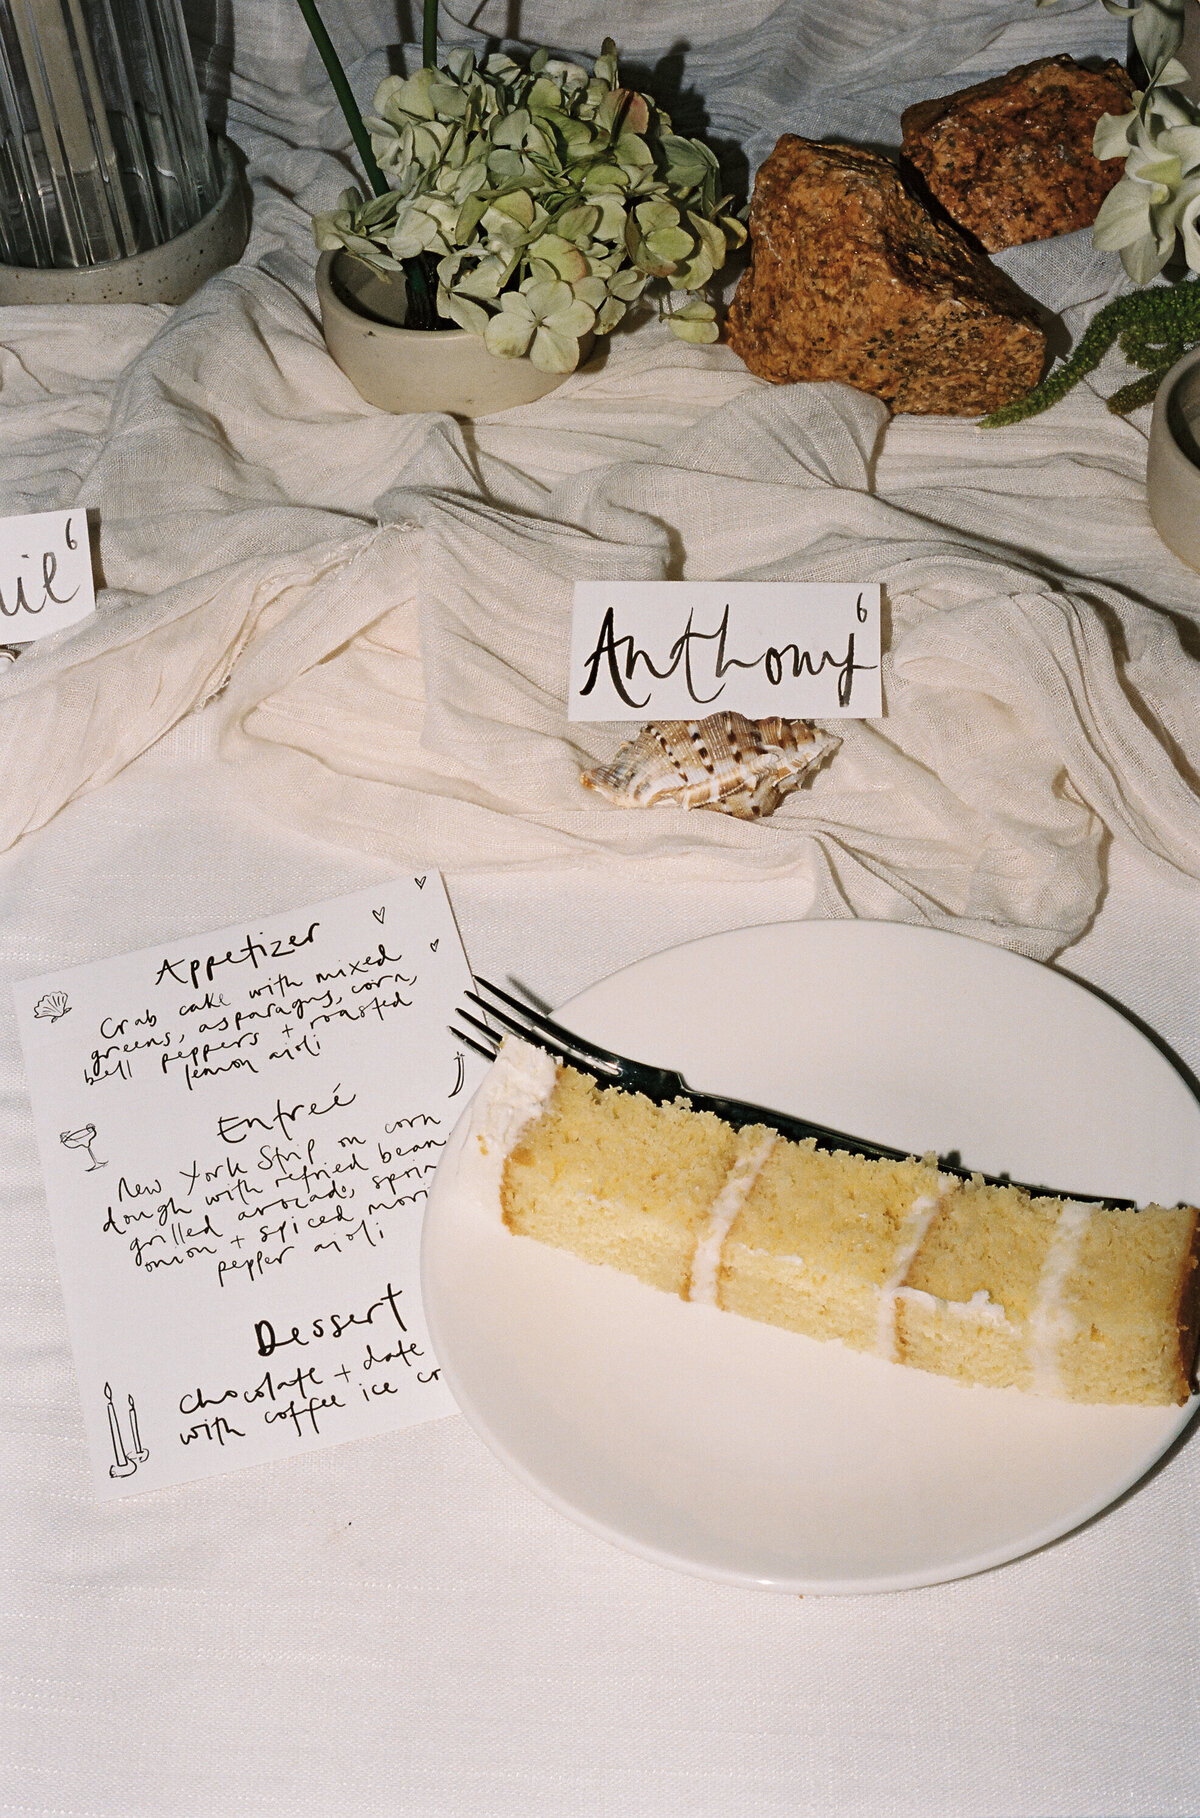 6
6
Anthony
Appetizer
Crab cake with mixed
greens, asparagus, corn,
bell peppers + roasted
lemon aioli
Entreé
New York Strip on corn
dough with refried bean
grilled avocado, sprin
onion + spiced
pepper aioli
Dessert
Chocolate + date
with coffee ice cr